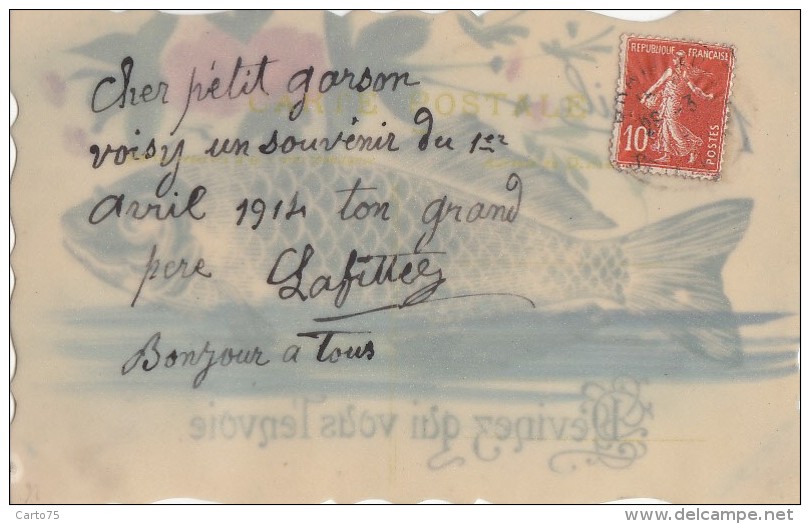 Cher pétit garson
CARTE POSTALE
voisy un souvénir du 1er
avril 1914 ton grand
pere Lafittég
Bonjour a Tous
Devinez qui vous l'envoie
REPUBLIQUE FRANÇAISE
10c
POSTES
Carto75
delcampe.net